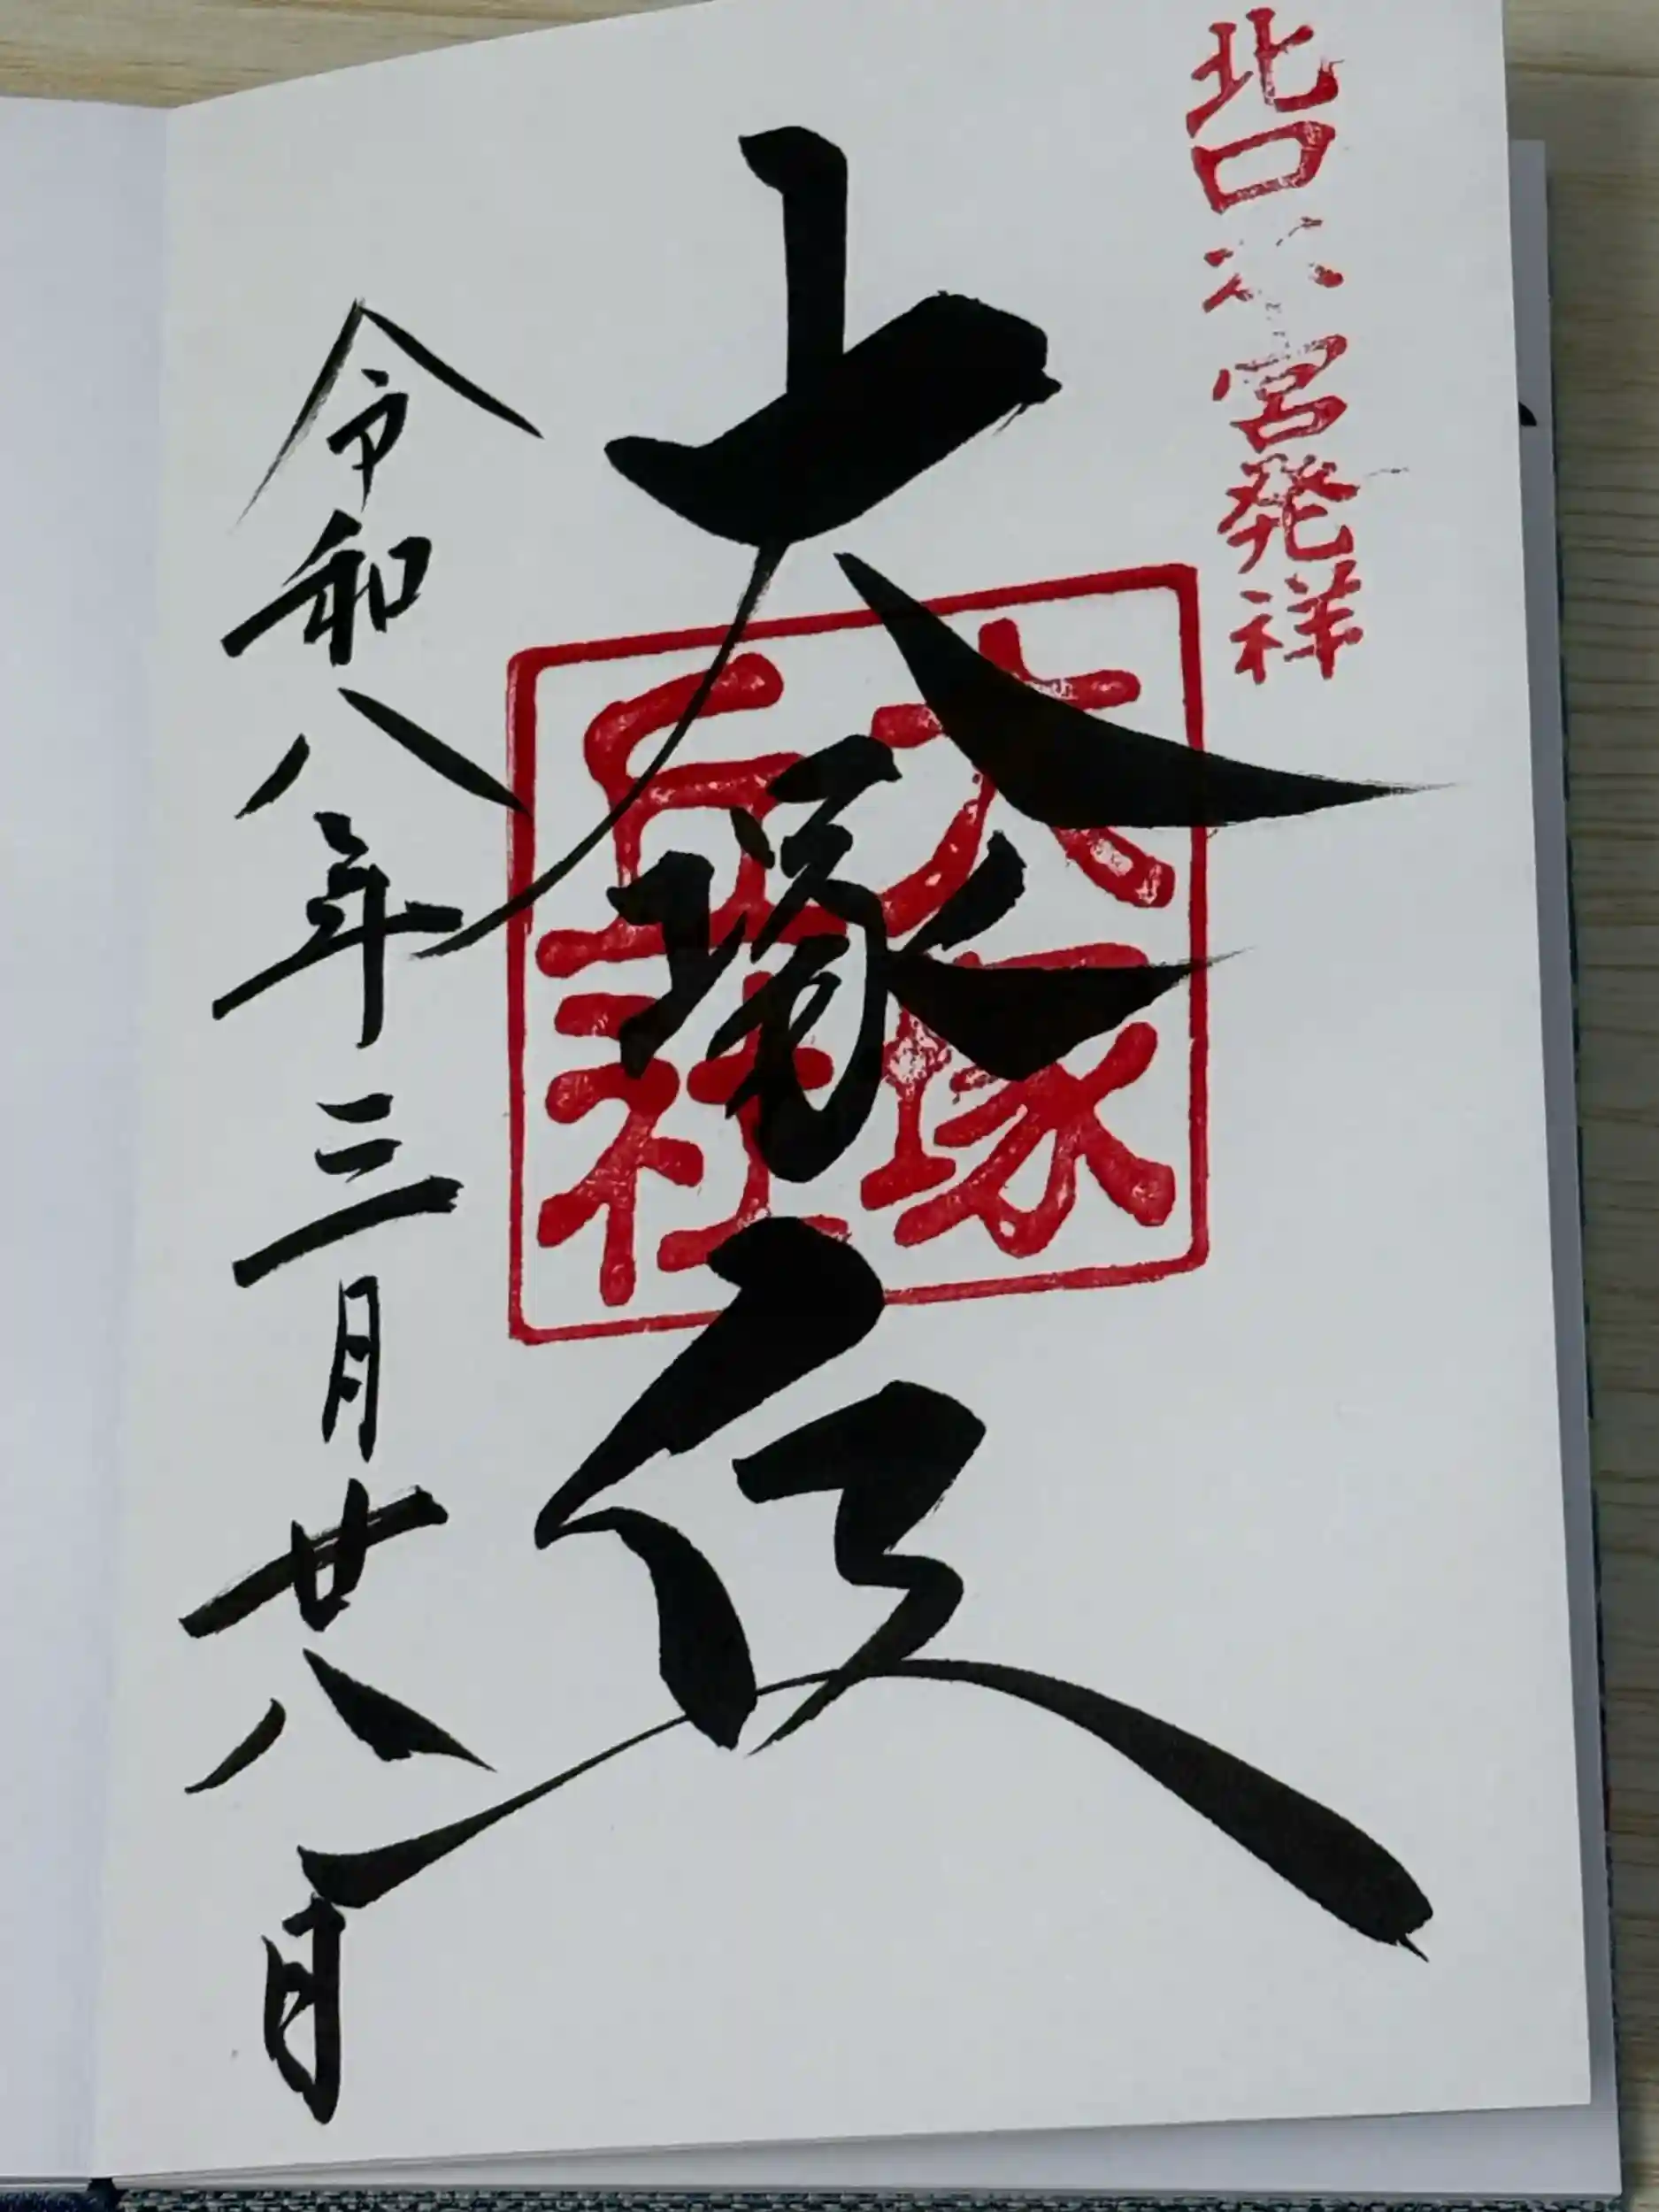 北口本宮発祥
大塚丘
大塚丘社
令和八年三月廿八日